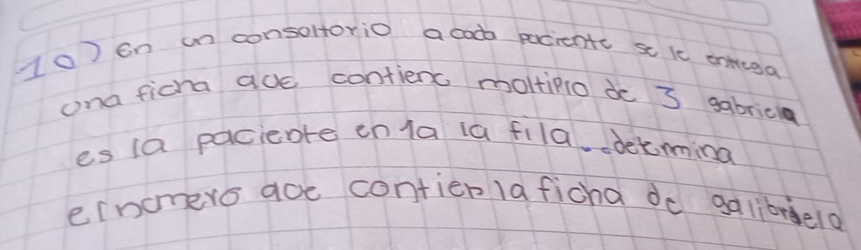 10) en un consoltorio a cada paciente se le entrega
una ficha qoe contiene moltiplo de 3 gabriela
es la paciente en 1a la fila. determina
el nomero qoe contien la ficha de galibriela